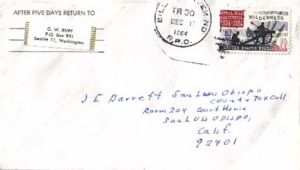 AFTER FIVE DAYS RETURN TO
G. W. RUPP
P.O. Box 951
Seattle 11, Washington
TR 20
DEC 1
1964
R.P.O.
CIVIL WAR
CENTENNIAL
WILDERNESS
UNITED STATES POSTAGE
J E Barrett San Luis Obispo
County Tax Coll
Room 204 Court House
San Luis Obispo,
Calif.
93401